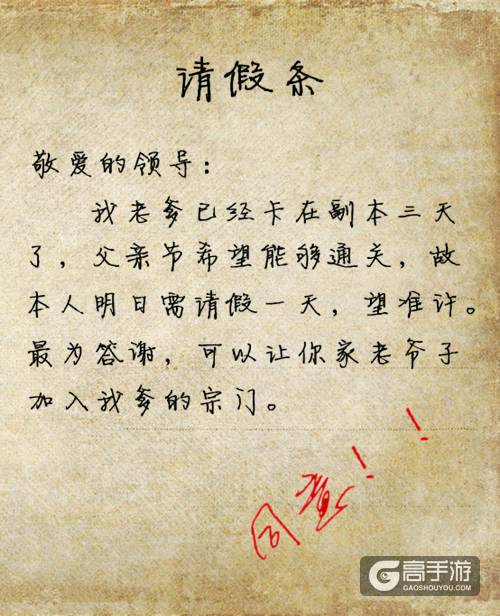 请假条
敬爱的领导：
我老爹已经卡在副本三天
了，父亲节希望能够通关，故
本人明日需请假一天，望准许。
最为答谢，可以让你家老爷子
加入我爹的宗门。
同意！！
高手游
GAOSHOUYOU.COM